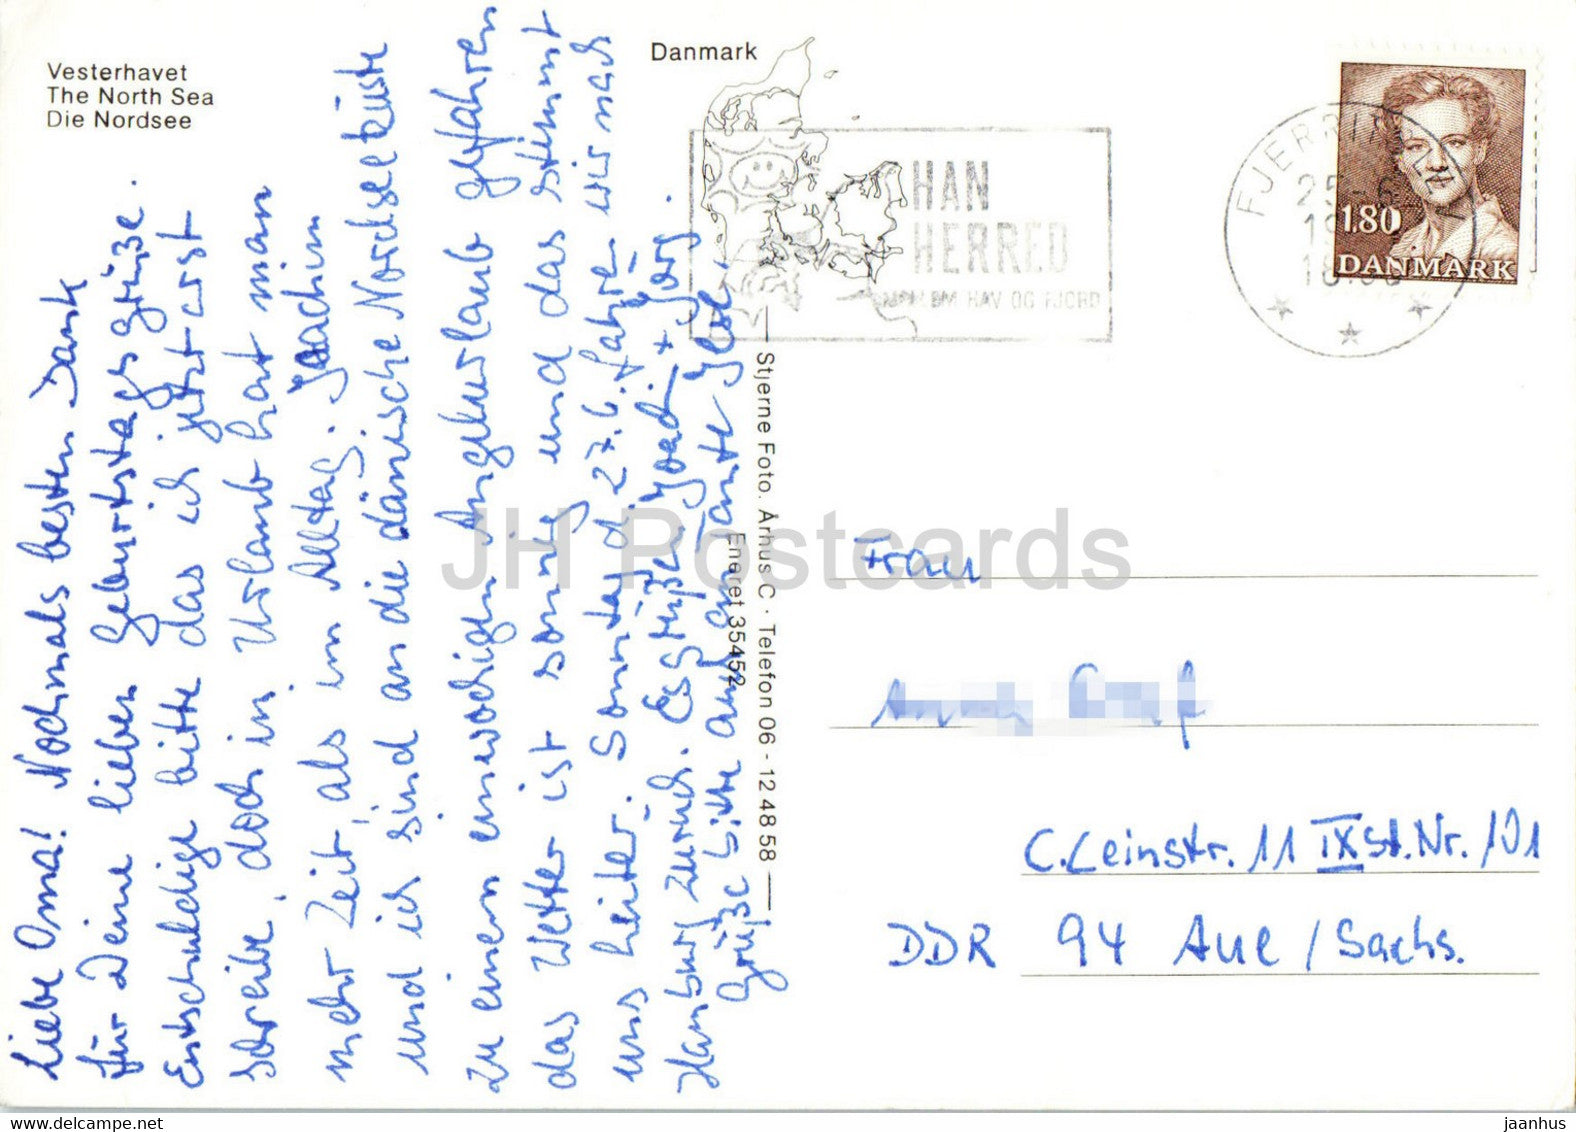 Vesterhavet
The North Sea
Die Nordsee
Danmark
HAN
HERRED
HAV OG FJORD
25.6.
1.80
DANMARK
Liebe Oma! Nochmals besten Dank
für Deine lieben Geburtstagsgrüße.
Entschuldige bitte das ich jetzt erst
schreibe, doch in Urlaub hat man
mehr Zeit, als im Alltag. Joachim
und ich sind an die dänische Nordseeküste
zu einem einwöchigen Angelurlaub gefahren
das Wetter ist sonnig und das stimmt
uns heiter. Sonntag d. 27.6. fahren wir nach
Hamburg zurück. Es grüßen Joach. +
Grüße bitte auch an Tante Ilse.
Stjerne Foto. Århus C · Telefon 06 - 12 48 58
Eneret 35452
Frau
C. Zeinstr. 11 IX St. Nr. 101
DDR 94 Aue / Sachs.
JH Postcards
www.delcampe.net
jaanhus